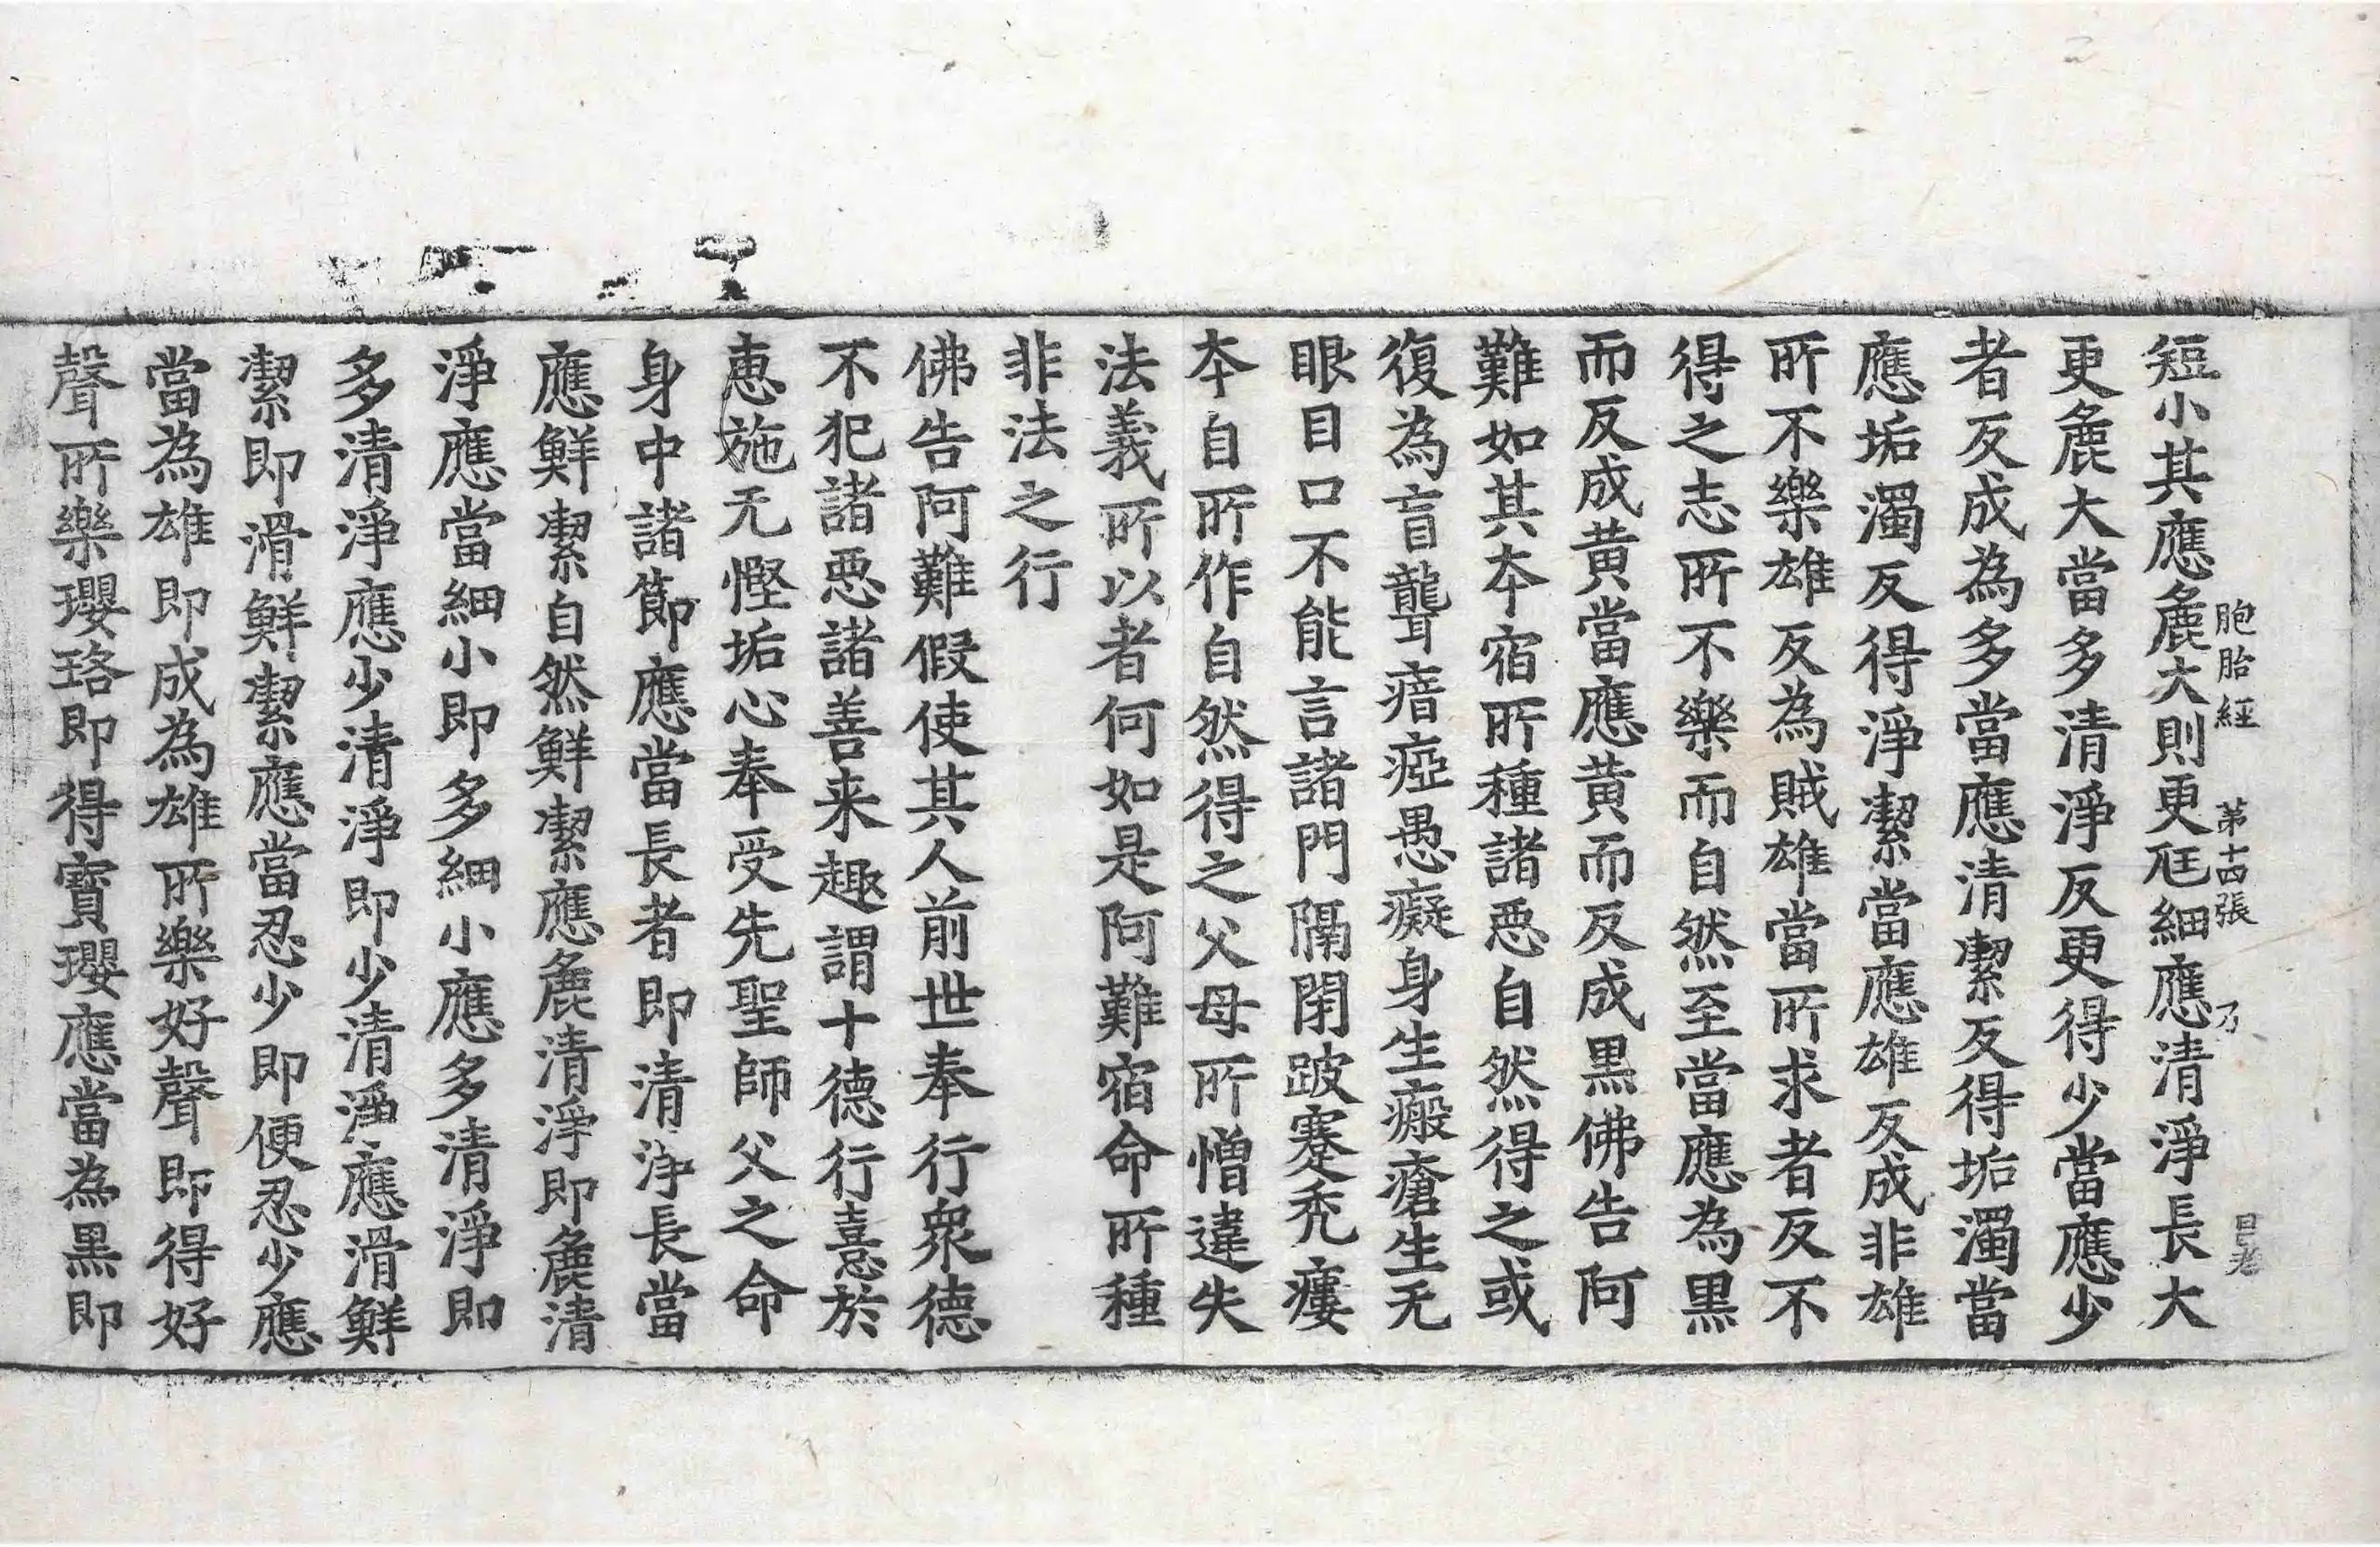 胞胎經　第十四張　乃
短小其應麁大則更尫細應清淨長大
更麁大當多清淨反更得少當應少
者反成為多當應清潔反得垢濁當
應垢濁反得淨潔當應雄反成非雄
所不樂雄反為賊雄當所求者反不
得之志所不樂而自然至當應為黒
而反成黄當應黄而反成黒佛告阿
難如其本宿所種諸惡自然得之或
復為盲聾瘖瘂愚癡身生瘢瘡生无
眼目口不能言諸門隔閉跛蹇禿瘻
本自所作自然得之父母所憎違失
法義所以者何如是阿難宿命所種
非法之行
佛告阿難假使其人前世奉行衆德
不犯諸惡諸善来趣謂十德行憙於
惠施无慳垢心奉受先聖師父之命
身中諸節應當長者即清淨長當
應鮮潔自然鮮潔應麁清淨即麁清
淨應當細小即多細小應多清淨即
多清淨應少清淨即少清淨應滑鮮
潔即滑鮮潔應當忍少即便忍少應
當為雄即成為雄所樂好聲即得好
聲所樂瓔珞即得寶瓔應當為黒即